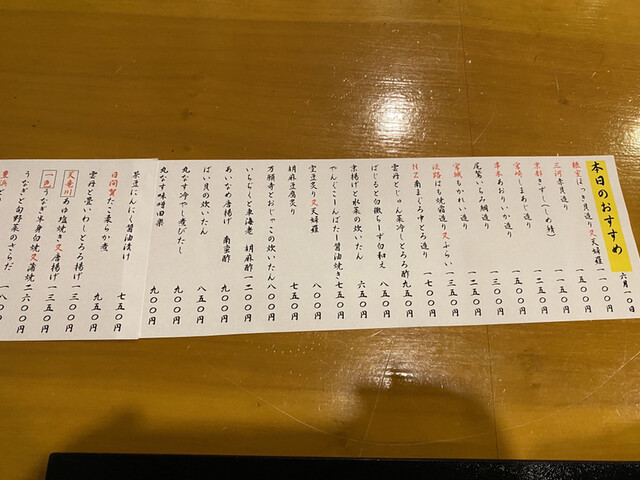 本日のおすすめ
六月一〇日
根室ほっき貝造り又天婦羅 一一〇〇円
三河赤貝造り 一五〇〇円
京都きずし(しめ鯖) 一二〇〇円
宮崎しまあじ造り 一五〇〇円
串本あおりいか造り 一三〇〇円
尾鷲いちみ鯛造り 一二五〇円
宮城もかれい造り 一二〇〇円
淡路はも焼霜造り又ふらい 一三五〇円
NZ南まぐろ中とろ造り 一七〇〇円
雲丹とじゅん菜冷しとろろ酢 九五〇円
ばじると白黴ちーず白和え 八五〇円
京揚げと水菜の炊いたん 六五〇円
でんぐこーんばたー醤油焼き 七五〇円
空豆炙り又天婦羅 八〇〇円
胡麻豆腐炙り 七五〇円
万願寺とおじゃこの炊いたん 八〇〇円
いちぢくと車海老 胡麻酢 一二〇〇円
あいなめ唐揚げ 南蛮酢 一一〇〇円
ばい貝の炊いたん 八五〇円
丸なす冷やし煮びたし 九〇〇円
丸なす味噌田楽 九〇〇円
茶豆にんにく醤油漬け 七五〇円
日間賀たこ柔らか煮 九五〇円
雲丹と畳いわしとろろ揚げ 一三〇〇円
天竜川あゆ塩焼き又唐揚げ 一三五〇円
一色うなぎ半身白焼又蒲焼 二六〇〇円
うなぎと旬野菜のさらだ 一八〇〇円